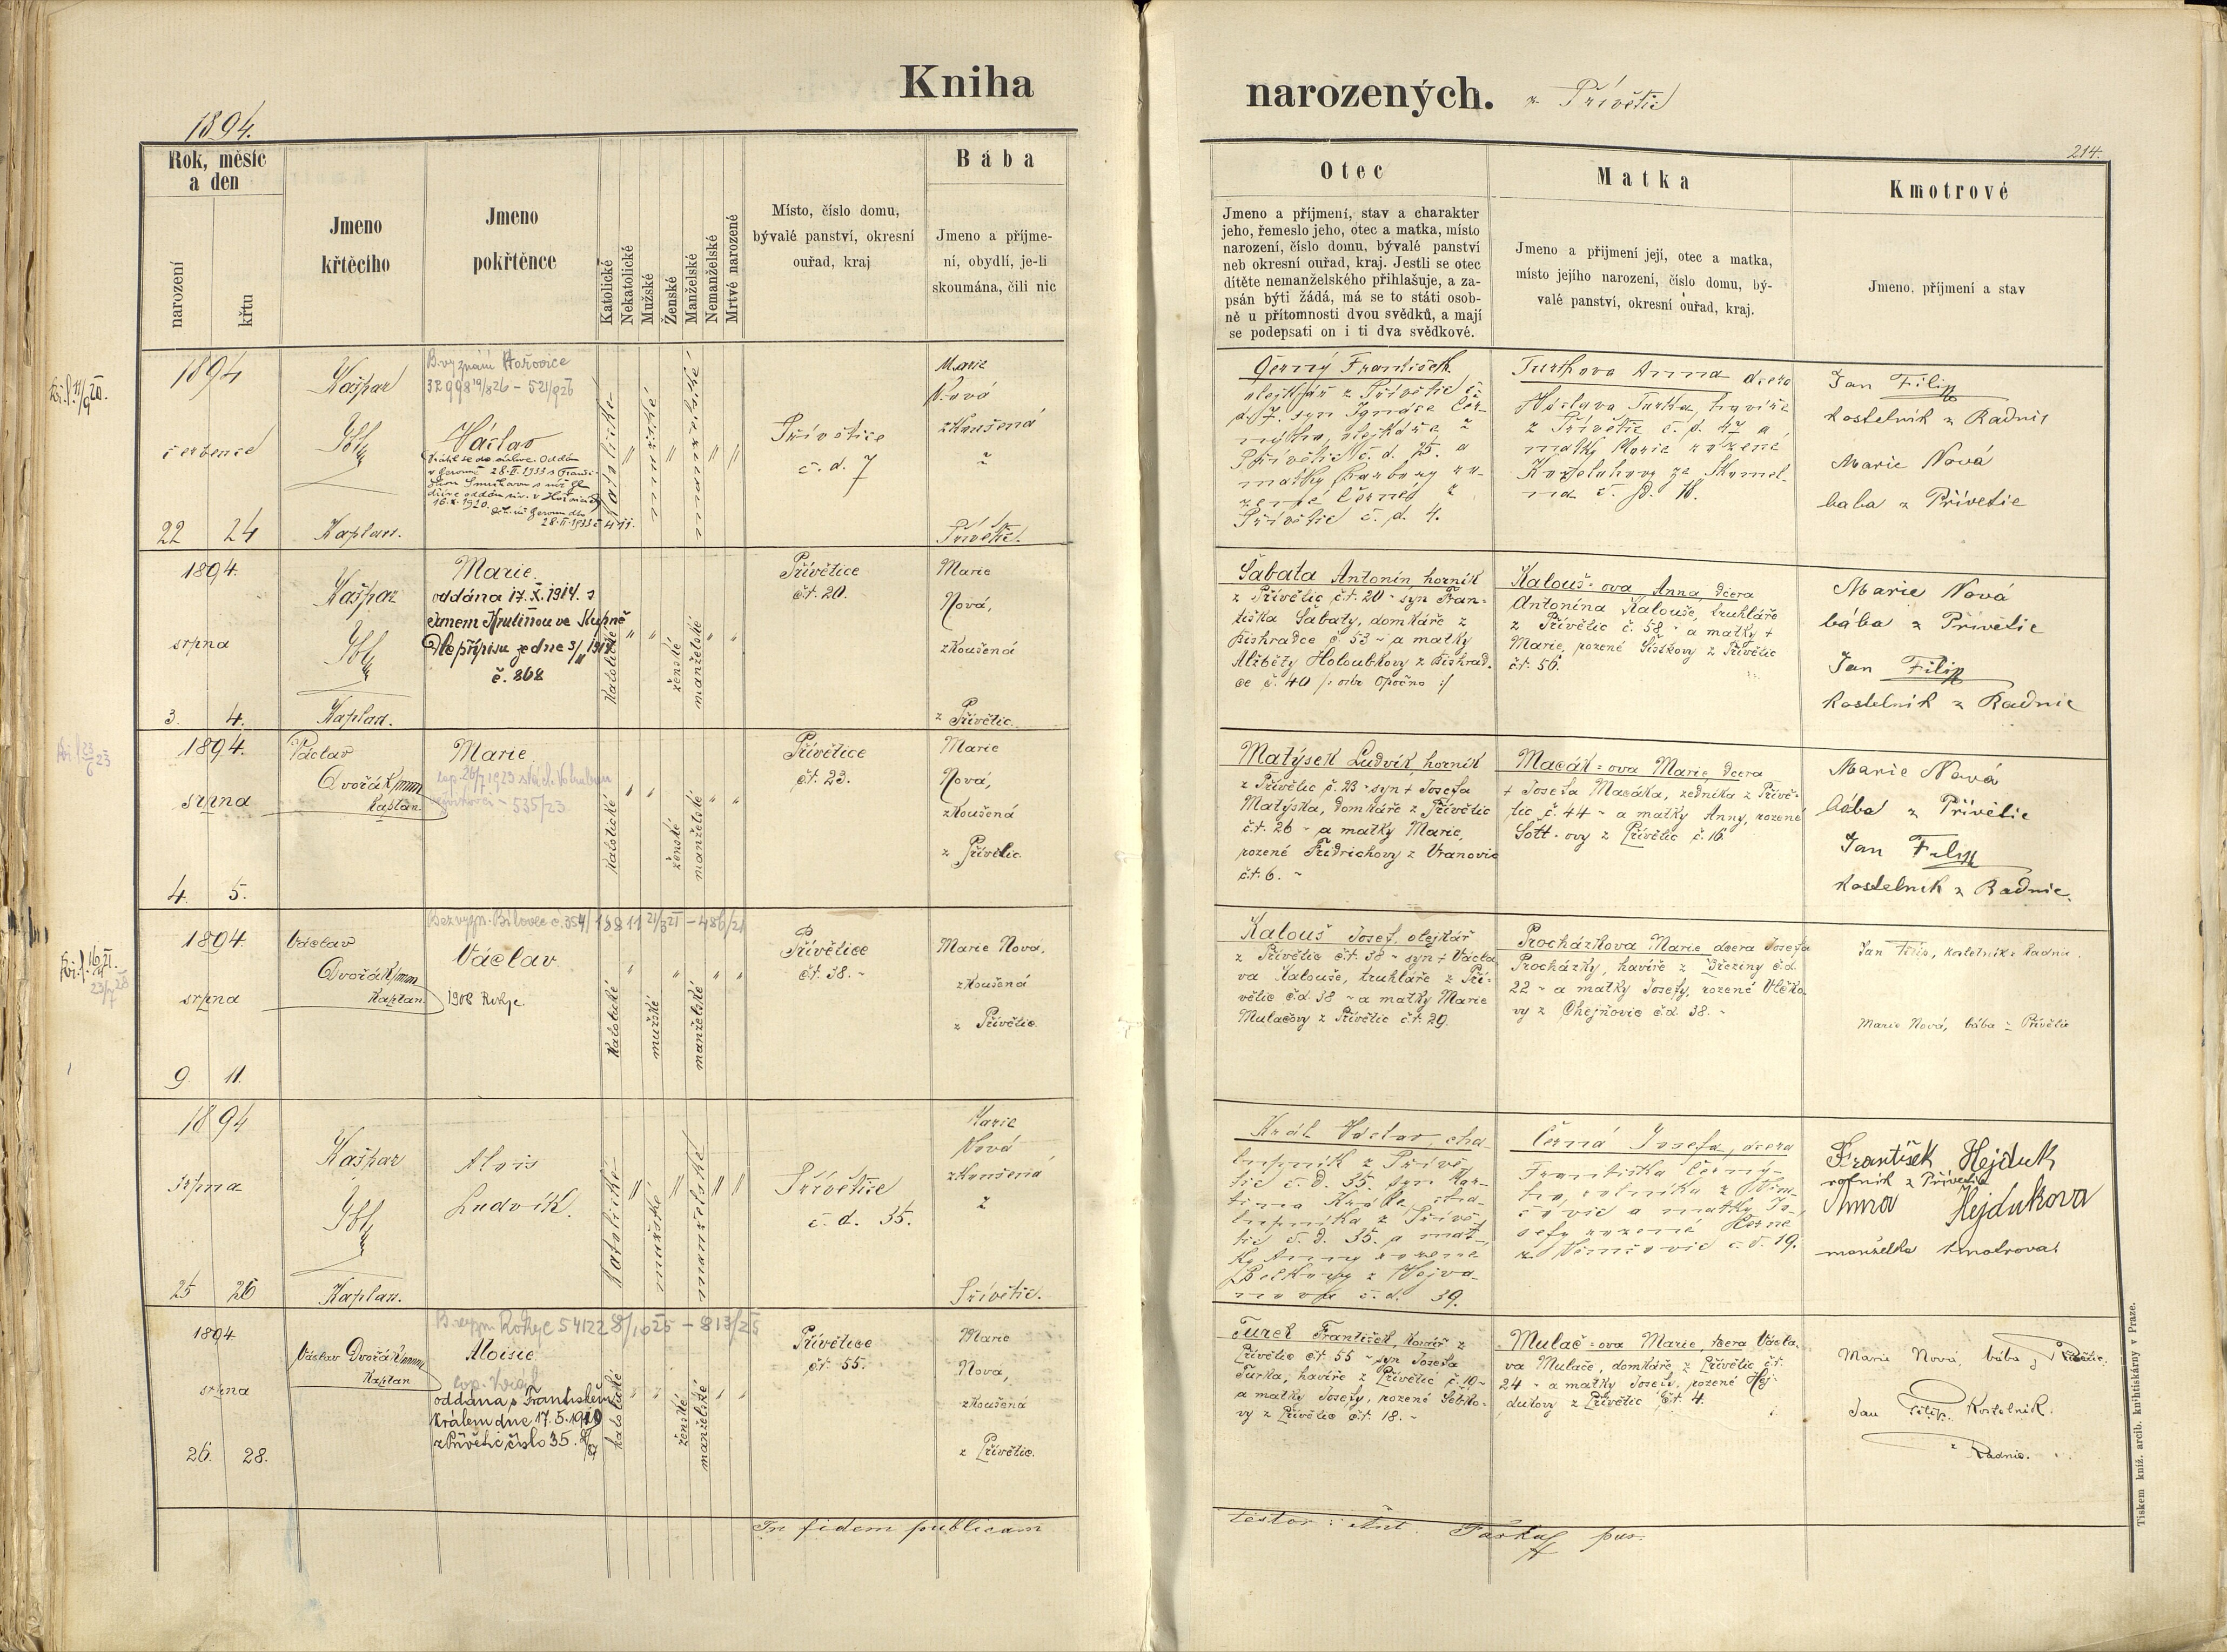 Kniha narozených. z Přívětic
1894.
214.
Rok, měsíc a den
narození
křtu
Jmeno křtěcího
Jmeno pokřtěnce
Katolické
Nekatolické
Mužské
Ženské
Manželské
Nemanželské
Mrtvé narozené
Místo, číslo domu,
bývalé panství, okresní
ouřad, kraj
Bába
Jmeno a příjme-
ní, obydlí, je-li
skoumána, čili nic
Otec
Jmeno a příjmení, stav a charakter
jeho, řemeslo jeho, otec a matka, místo
narození, číslo domu, bývalé panství
neb okresní ouřad, kraj. Jestli se otec
dítěte nemanželského přihlašuje, a za-
psán býti žádá, má se to státi osob-
ně u přítomnosti dvou svědků, a mají
se podepsati on i ti dva svědkové.
Matka
Jmeno a přijmení její, otec a matka,
místo jejího narození, číslo domu, bý-
valé panství, okresní ouřad, kraj.
Kmotrové
Jmeno, příjmení a stav
1894
července
22 24
Kašpar
Kaplan.
B. vyznání Hořovice
Václav
28.II.1933
16.X.1920.
katolické
mužské
manželské
Přívětice
č. d. 7
Marie
Nová
zkoušená
z
Přívětic.
Černý František
olejkář z Přívětic č.
d. 7. syn Ignáce Čer-
ného, olejkáře z
Přívětic č. d. 25. a
matky Barbory ro-
zené Černé z
Přívětic č. d. 4.
Turkova Anna dcera
Václava Turka, havíře
z Přívětic č. d. 47 a
matky Marie rozené
č. d. 18.
Jan Filip
kostelník z Radnic
Marie Nová
baba z Přívetic
1894.
srpna
3. 4.
Kašpar
Kaplan.
Marie.
oddána 17.X.1914. s
Janem Krulišou ve Stupně
Dle přípisu ze dne 3/11 1914
č. 868
katolické
ženské
manželské
Přívětice
čt. 20.
Marie
Nová,
zkoušená
z Přívětic.
Šabata Antonín horník
z Přívětic čt. 20 - syn Fran-
tiška Šabaty, domkáře z
Bishradce č. 53 - a matky
Alžběty Holoubkovy z Bishrad-
ce č. 40 /: okr. Opočno :/
Kalouš-ova Anna, dcera
Antonína Kalouše, truhláře
z Přívětic č. 58 - a matky +
Marie, rozené Šístkovy z Přívětic
čt. 56.
Marie Nová
bába z Přívetic
Jan Filip
kostelník z Radnic
1894.
srpna
4. 5.
Václav
Dvořák
Kaplan
Marie
535/23
katolické
ženské
manželské
Přívětice
čt. 23.
Marie
Nová,
zkoušená
z Přívětic.
Matýsek Ludvík, horník
z Přívětic č. 23 - syn + Josefa
Matýska, domkáře z Přívětic
čt. 26 - a matky Marie,
rozené Fridrichovy z Vranovic
čt. 6. -
Macák-ova Marie, dcera
+ Josefa Macáka, zedníka z Přívě-
tic č. 44 - a matky Anny, rozené
Šott-ovy z Přívětic č. 16
Marie Nová
bába z Přívětic
Jan Filip
kostelník z Radnic.
1894.
srpna
9 11.
Václav
Dvořák
Kaplan.
Václav
1908 Rokyc.
katolické
mužské
manželské
Přívětice
čt. 38. -
Marie Nova,
zkoušená
z Přívětic.
Kalouš Josef, olejkář
z Přívětic čt. 38 - syn + Václa-
va Kalouše, truhláře z Pří-
větic čd 38 - a matky Marie
Mulačovy z Přívětic čt. 29.
Procházkova Marie, dcera Josefa
Procházky, havíře z Březiny čd.
22 - a matky Josefy, rozené Vlčko-
vy z Chejňovic čd. 38. -
Jan Filip, kostelník z Radnic.
Marie Nová, bába z Přívětic
1894
srpna
25 26
Kašpar
Kaplan.
Alois
Ludvík.
katolické
mužské
manželské
Přívětice
č. d. 35.
Marie
Nová
zkoušená
z
Přívětic.
Král Václav, cha-
lupník z Přívě-
tic č. d. 35. syn Mar-
tina Krále, cha-
lupníka z Přívě-
tic č. d. 35. a mat-
ky Anny rozené
z Vejva-
nova č. d. 39.
Černá Josefa, dcera
Františka Černé-
ho, rolníka z Něm-
čovic a matky Jo-
sefy rozené
z Němčovic č. d. 19.
František Hejduk
rolník z Přívetic
Anna Hejdukova
manželka kmotrova
1894
srpna
26. 28.
Václav Dvořák
Kaplan
Aloisie
oddána s Františkem
Králem dne 17.5.1919
z Přívětic číslo 35.
katolické
ženské
manželské
Přívětice
čt. 55.
Marie
Nova,
zkoušená
z Přívětic.
Turek František, kovář z
Přívětic čt. 55 - syn Josefa
Turka, havíře z Přívětic č. 10 -
a matky Josefy, rozené Šebko-
vy z Přívětic čt. 18. -
Mulač-ova Marie, dcera Václa-
va Mulače, domkáře z Přívětic čt.
24 - a matky Josefy, rozené Hej-
dukovy z Přívětic čt. 4.
Marie Nova, bába z Přívětic.
Jan Filip, kostelník.
z Radnic.
In fidem publicam
testor: Ant.
Tiskem kníž. arcib. knihtiskárny v Praze.